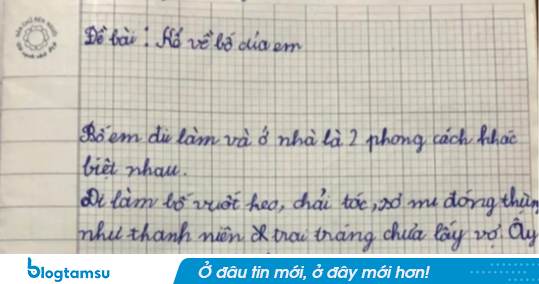 Đề bài : Kể về bố của em
Bố em đi làm và ở nhà là 2 phong cách khác
biệt nhau.
Đi làm bố vuốt keo, chải tóc, sơ mi đóng thùng
như thanh niên trai tráng chưa lấy vợ. Ấy
blogtamsu
Ở đâu tin mới, ở đây mới hơn!